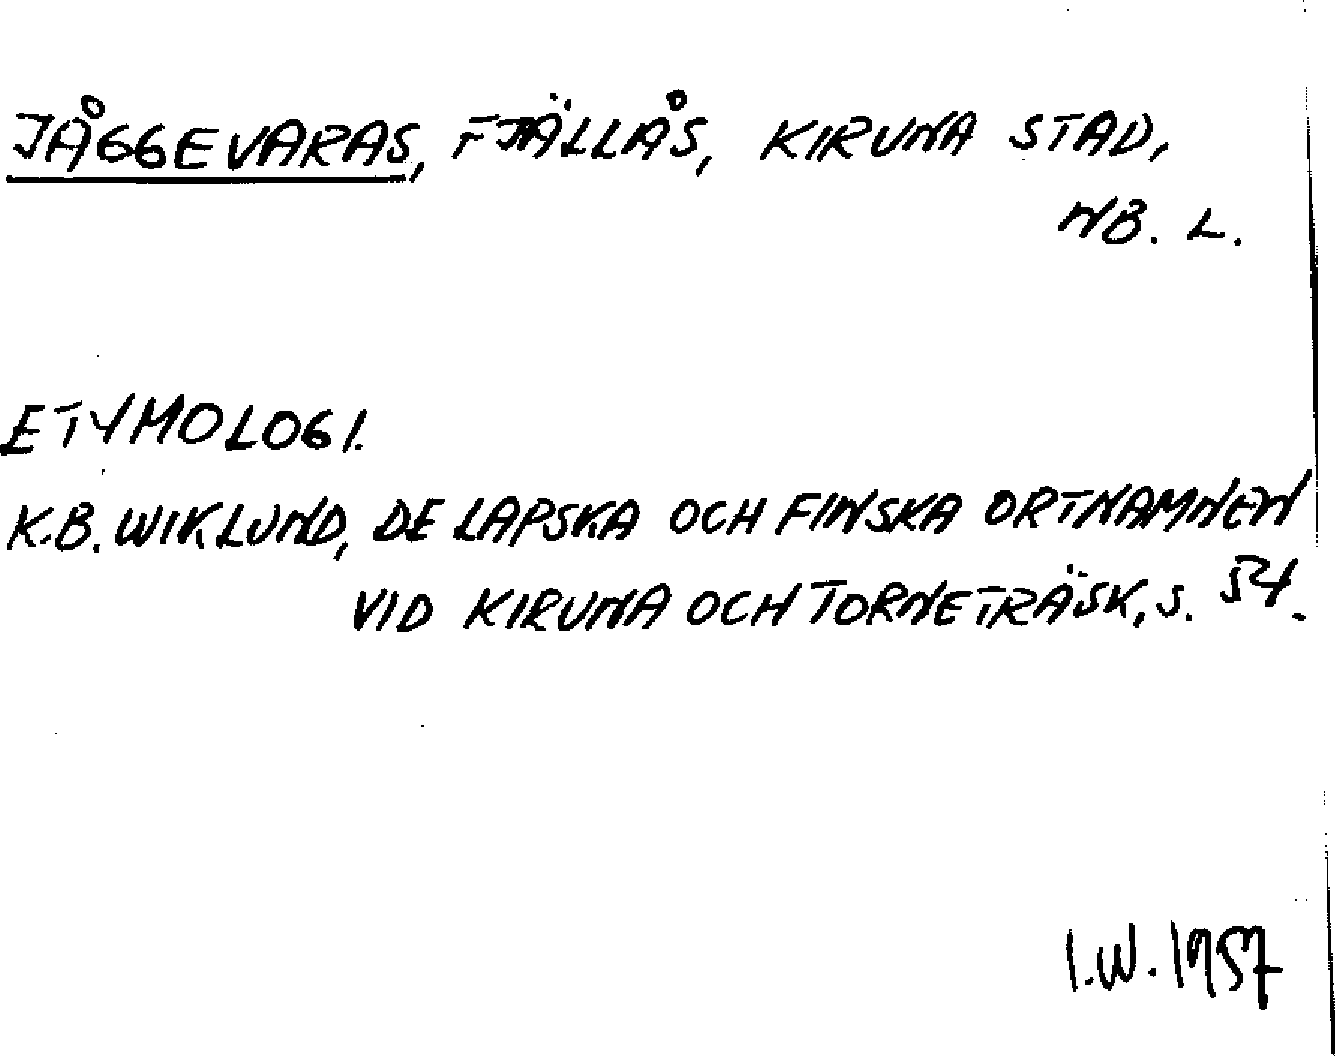 JÅGGEVARAS, FJÄLLÅS, KIRUNA STAD,
NB. L.
ETYMOLOGI.
K.B. WIKLUND, DE LAPSKA OCH FINSKA ORTNAMNEN
VID KIRUNA OCH TORNETRÄSK, S. 54.
I.W. 1957